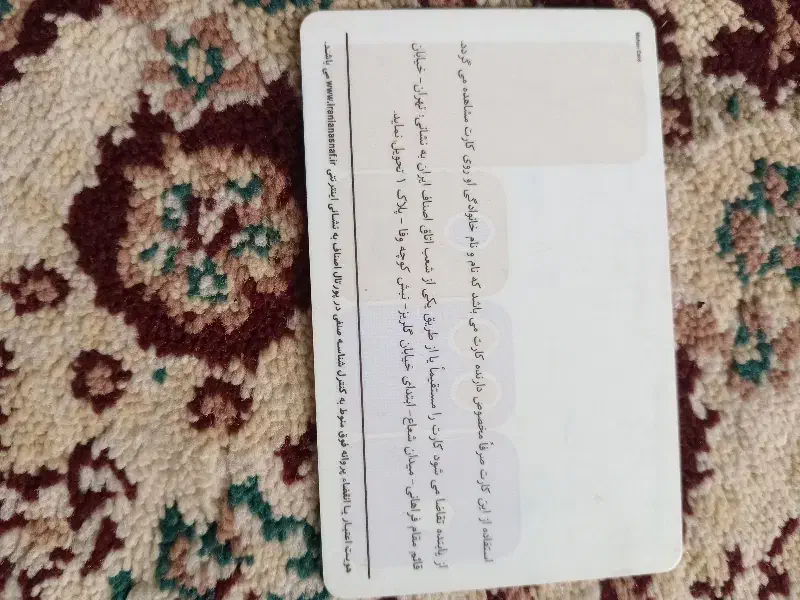 استفاده از این کارت صرفاً مخصوص دارنده کارت می باشد که نام و نام خانوادگی او روی کارت مشاهده می گردد.
از یابنده تقاضا می شود کارت را مستقیماً یا از طریق یکی از شعب اتاق اصناف ایران به نشانی: تهران- خیابان
قائم مقام فراهانی- میدان شعاع- ابتدای خیابان گلریز- نبش کوچه وفا - پلاک ۱ تحویل نماید.
هویت اعتبار یا انقضاء پروانه فوق منوط به کنترل شناسه صنفی در پورتال اصناف به نشانی اینترنتی www.iranianasnaf.ir می باشد.